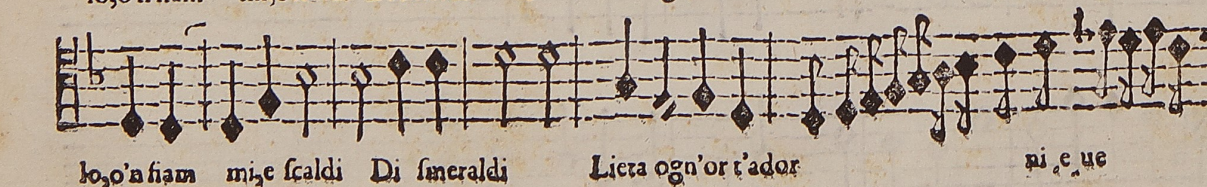 lo,o'n fiam mi,e ſcaldi Di ſmeraldi Lieta ogn'or t'ador ni e ue